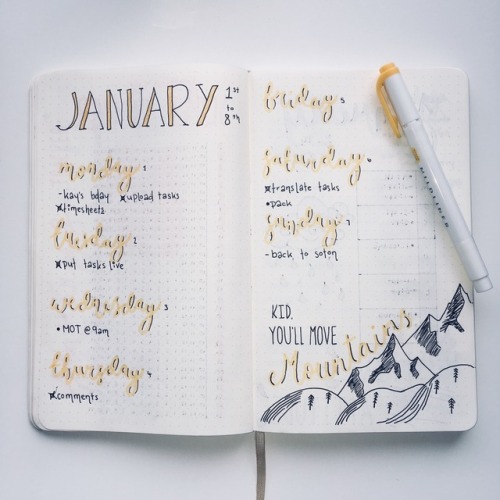 JANUARY 1st to 8th
monday 1
- kay's bday x upload tasks
x timesheets
tuesday 2
x put tasks live
wednesday 3
• MOT @ 9am
thursday 4
x comments
friday 5
saturday 6
x translate tasks
• pack
sunday 7
- back to soton
KID,
YOU'LL MOVE
Mountains